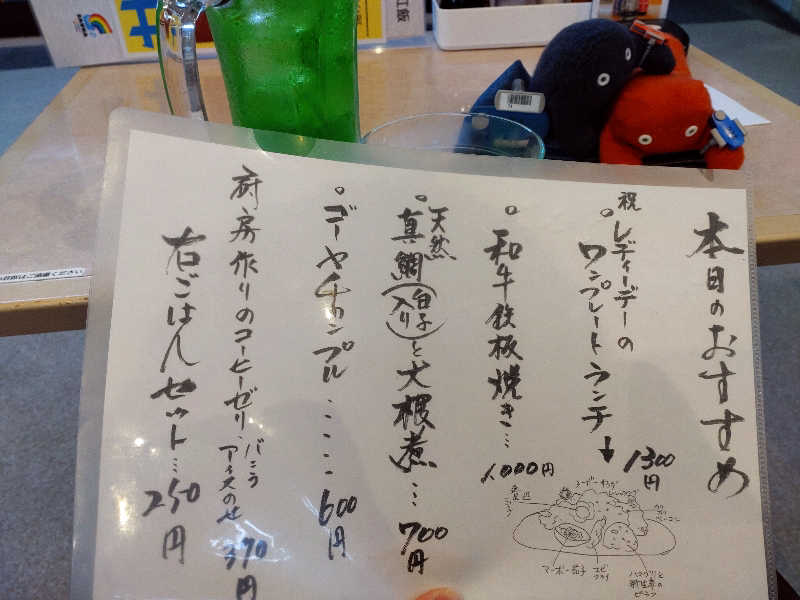 本日のおすすめ
祝
。レディーデーの
ワンプレートランチ↓
1300円
。和牛鉄板焼き…
1000円
。天然
真鯛(白子入り)と大根煮…
700円
。ゴーヤチャンプル・・・・・
600円
厨房作りのコーヒーゼリー
バニラ
アイスのせ
390円
右ごはんセット…
250円
マーボー茄子
エビ
フライ
ピラフ